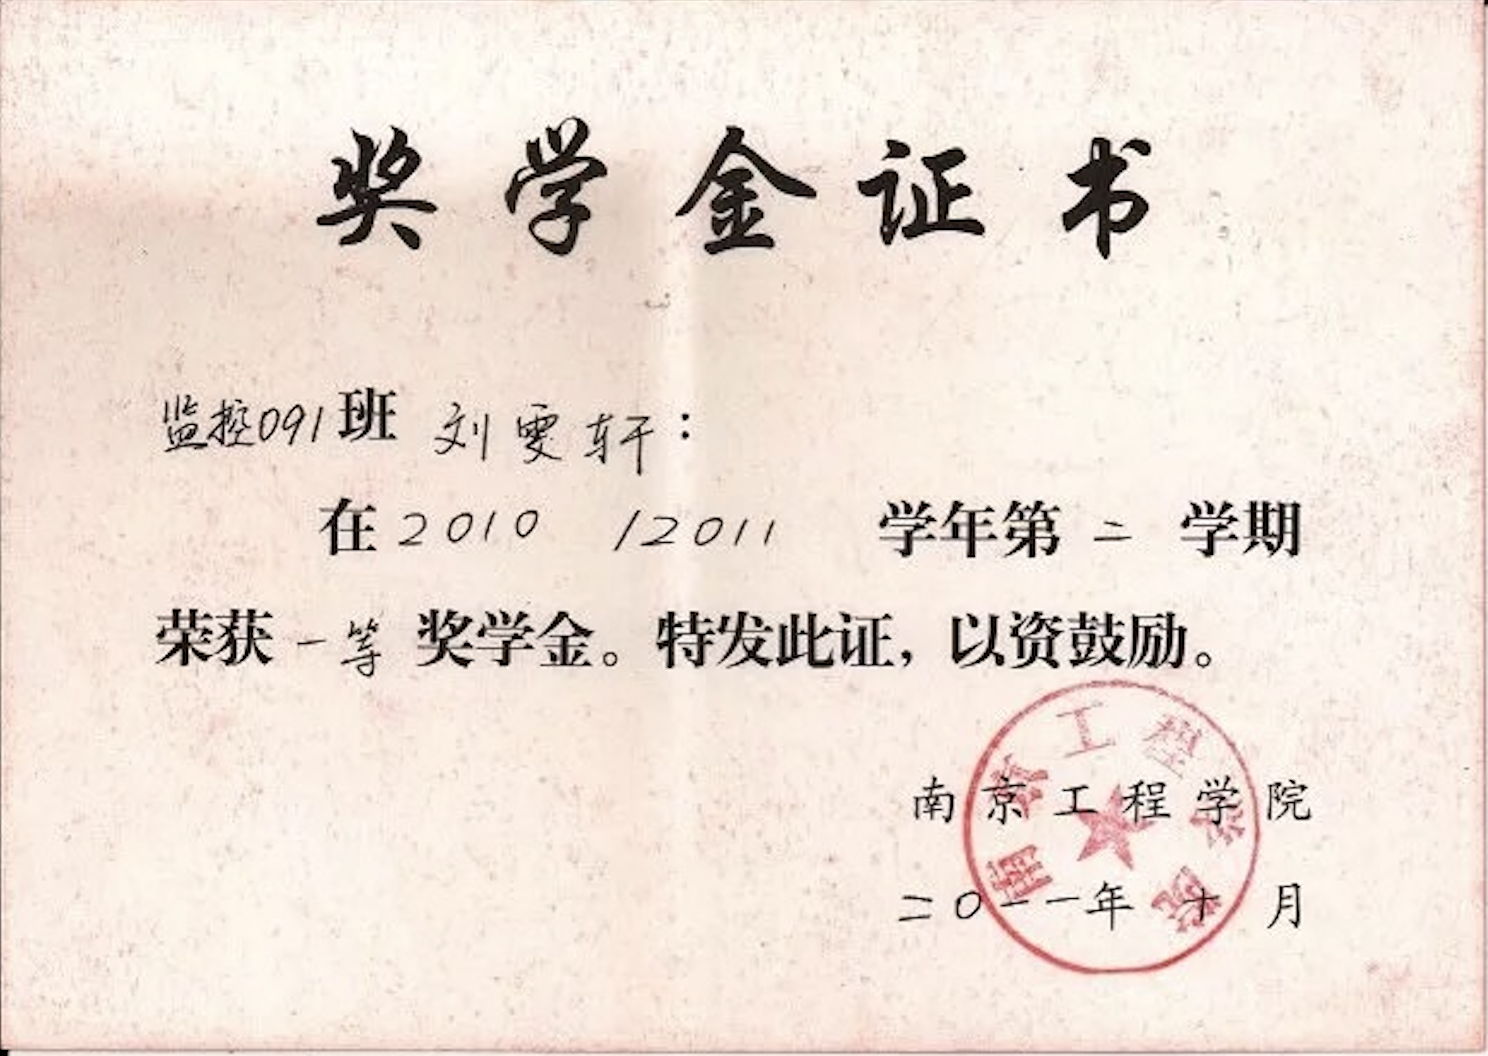 奖学金证书
监控091班 刘雯轩：
在2010 /2011 学年第二学期
荣获一等奖学金。特发此证，以资鼓励。
南京工程学院
二〇一一年十月
南京工程学院